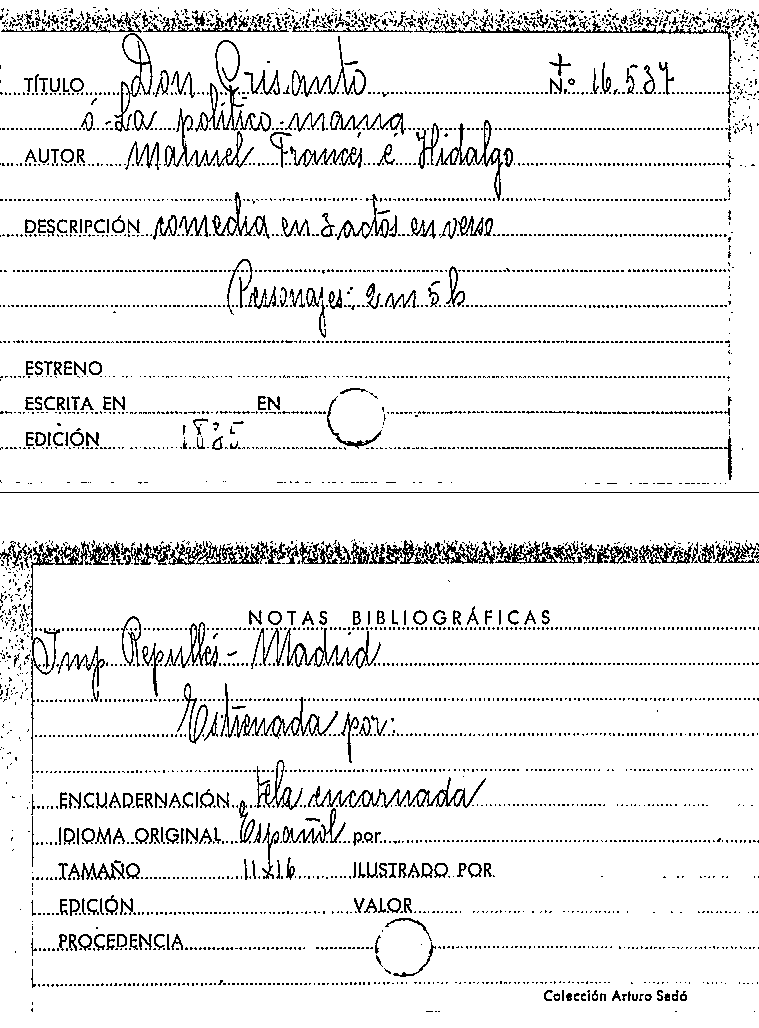 TÍTULO Don Crisanto. N.º 16.537
ó La político-manía
AUTOR Manuel Francés e Hidalgo
DESCRIPCIÓN comedia en 3 actos en verso
Personajes: 2 m 5 h
ESTRENO
ESCRITA EN EN
EDICIÓN 1835
NOTAS BIBLIOGRÁFICAS
Imp. Repullés - Madrid
Estrenada por:
ENCUADERNACIÓN tela encarnada
IDIOMA ORIGINAL Español por
TAMAÑO 11x16 ILUSTRADO POR
EDICIÓN VALOR
PROCEDENCIA
Colección Arturo Sedó